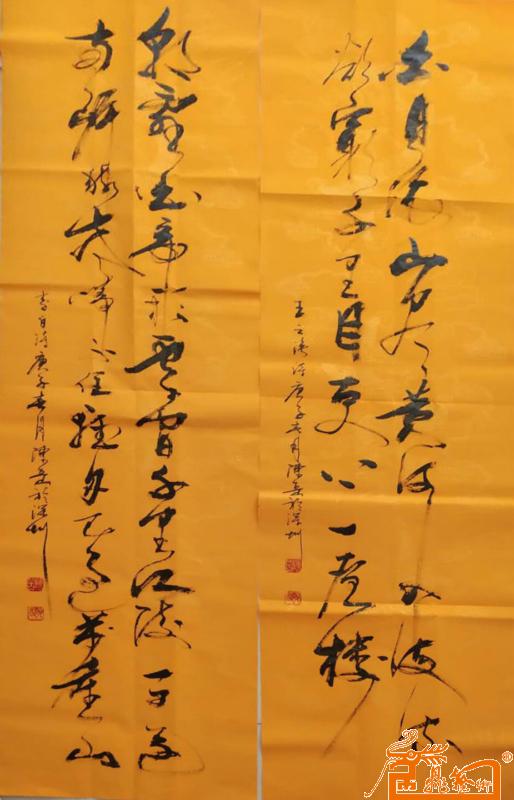 白日依山尽黄河入海流
欲窮千里目更上一层楼
王之涣诗庚子春月陈於深圳
朝辞白帝彩雲間千里江陵一日還
两岸猿声啼不住轻舟已过万重山
李白诗庚子春月陈於深圳